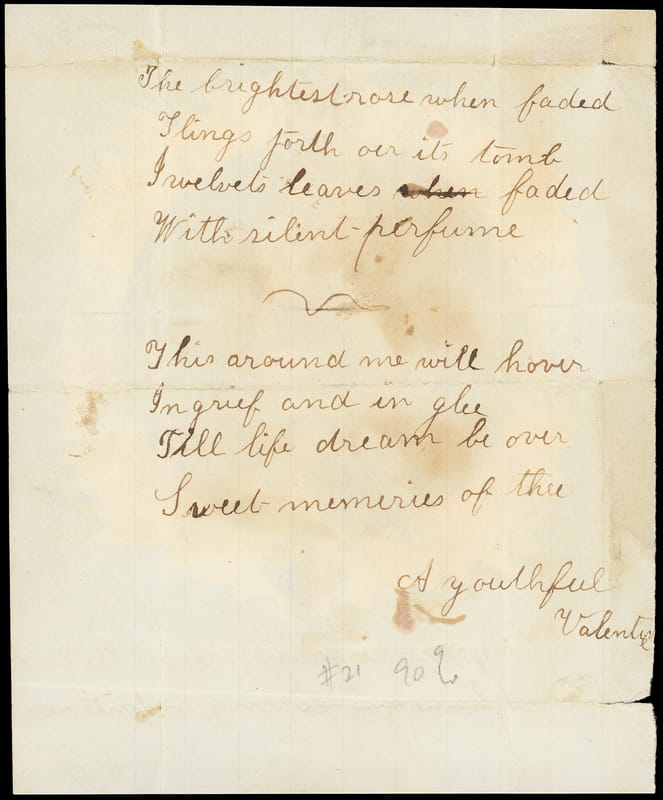 The brightest rose when faded
Flings forth oer its tomb
Its velvets leaves when faded
With silent perfume
This around me will hover
In grief and in glee
Till life dream be over
Sweet memeries of thee
A youthful
Valentine
#21 90%